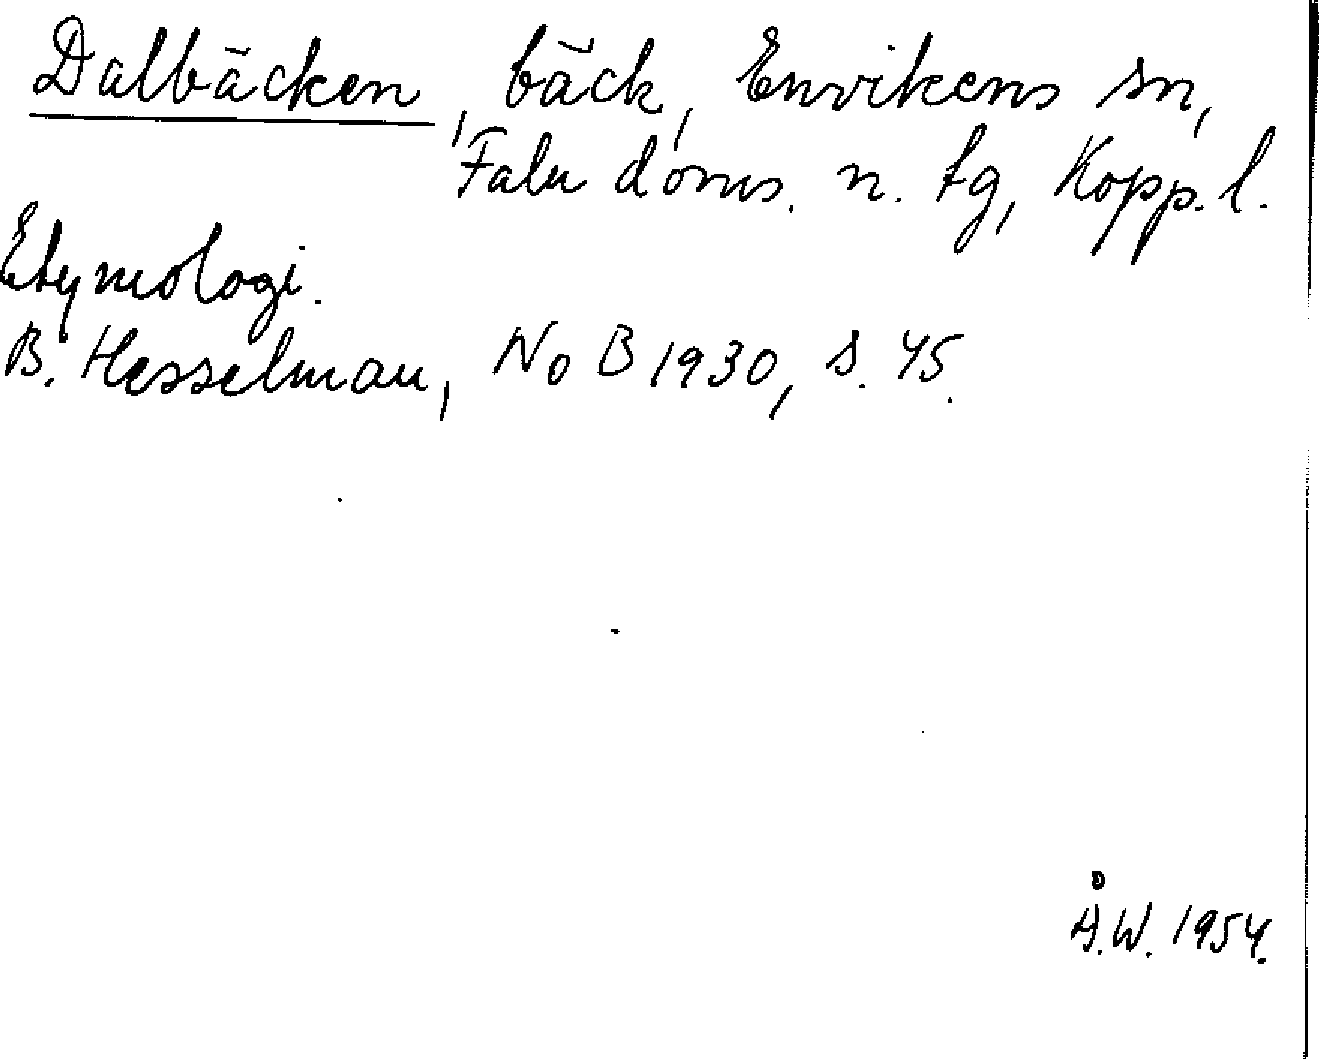 Dalbäcken, bäck, Envikens sn,
Falu doms. n. tg, Kopp. l.
Etymologi.
B. Hesselman, NoB 1930, s. 45.
Å.W. 1954.